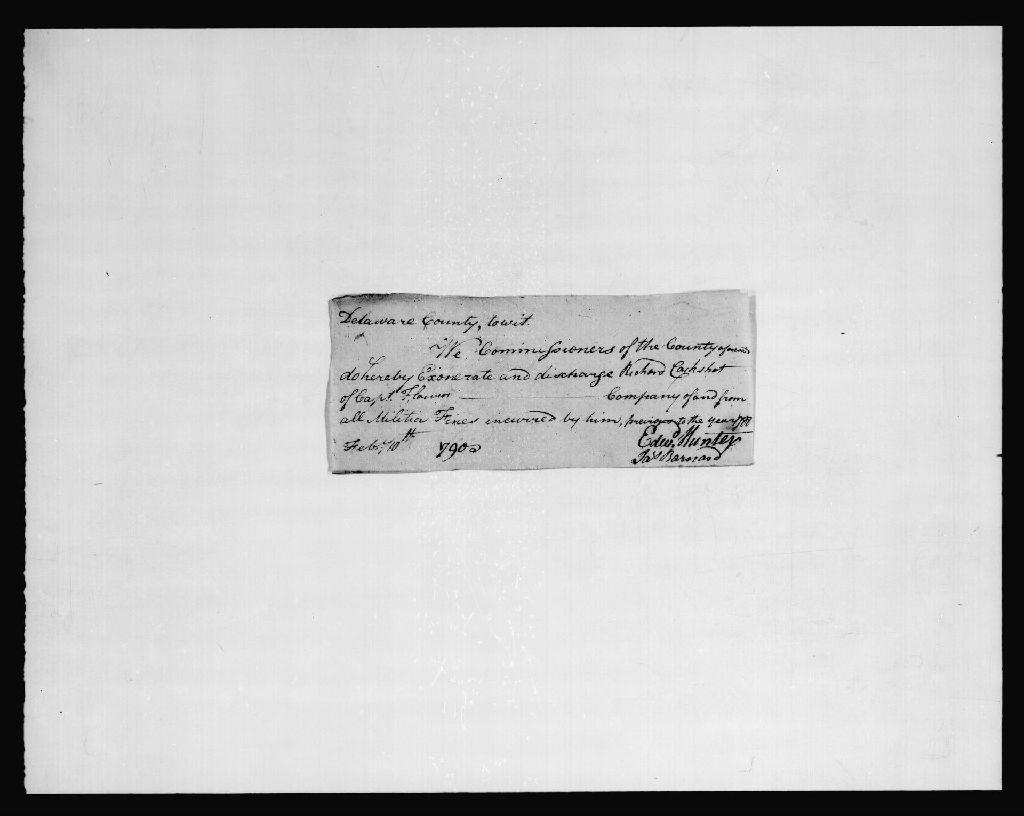 Delaware County, towit.
We Commissioners of the County aforesaid
do hereby Exonerate and discharge Richard
of Capt. Company of and from
all Militia Fines incurred by him, previous to the year
Feby. 10th 1790 Edwd. Hunter
Jas Barnard